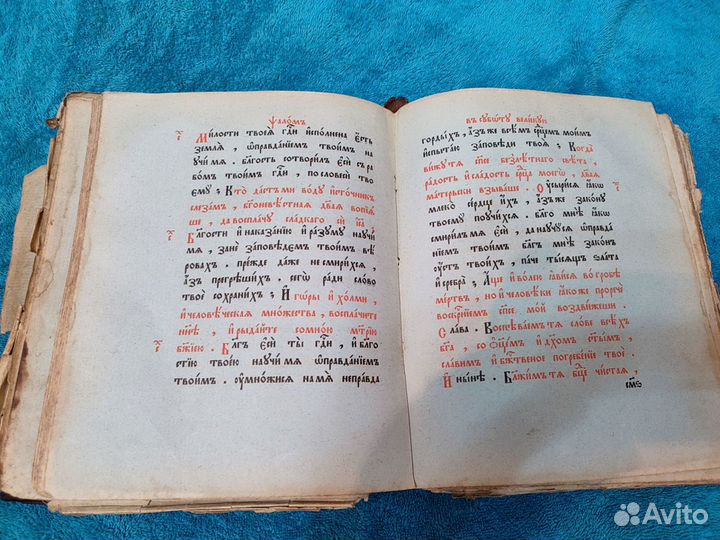 ѱало́мъ
Милости твоея̀ гдⷭ҇и и҆сполнена є҆сть
землѧ̀ , ѡ҆правданїемъ твои́мъ на
ꙋчи́ мѧ . Благость сотвори́лъ є҆сѝ съ ра
бомъ твои́мъ гдⷭ҇и , по словеси̂ тво
емꙋ̀ ; Кто̀ дастъ мѝ во́дꙋ и҆ и҆сто́чникъ
слеза́мъ , бг҃оневѣстнаѧ два҃ѧ вопїѧ́
ше , да восплачꙋ сла́дкаго сѝ і҆са ;
Благости и҆ наказа́нїю и҆ ра́зꙋмꙋ наꙋчи́
мѧ , занѐ за́повѣдемъ твои́мъ вѣ
ровахъ . пре́жде даже не смирихсѧ ,
а҆зъ прегрѣши́хъ . сегѡ̀ ради слово
твоѐ сохрани́хъ ; И҆ го́ры и҆ хо́лми ,
и҆ человѣ́ческаѧ мно́жества , воспла́чите
и҆ рыда́йте со мно́ю мт҃рїю
бж҃їею . Бл҃гъ є҆сѝ ты̀ гдⷭ҇и , и҆ бл҃го
стїю твое́ю наꙋчи́ мѧ ѡ҆правда́нїемъ
твои́мъ . ᲂу҆мно́жисѧ на мѧ̀ непра́вда
въ сꙋбѡ́тꙋ вели́кꙋю
горды́хъ , а҆́зъ же всѣ́мъ срⷣцемъ мои́мъ
и҆спыта́ю за́повѣди твоѧ̀ ; Когда̀
ви́жꙋ тѧ сп҃се безлѣ́тнаго свѣ́та ,
ра́дость и҆ сла́дость срⷣца моегѡ̀ , два҃ѧ
ма́терьски взыва́ше . Оу҆сыри́сѧ ꙗ҆́кѡ
млеко̀ се́рдце и҆́хъ , а҆́зъ же зако́нꙋ
твоемꙋ̀ поꙋчи́хсѧ . бл҃го мнѣ̀ ꙗ҆́кѡ
смири́лъ мѧ є҆сѝ , да наꙋчꙋ́сѧ ѡ҆правда́
нїемъ твои́мъ бл҃гъ мнѣ̀ зако́нъ
ᲂу҆стъ твои́хъ , па́че ты́сѧщъ зла́та
и҆ сребра̀ ; А҆́ще и҆ во́лею ꙗ҆ви́сѧ во гро́бѣ
ме́ртвъ , но и҆ человѣ́ки ꙗ҆́коже прорече́
воскрⷭ҇нїемъ сп҃се мо́й воздви́жеши .
Сла́ва . Воспѣва́емъ тѧ сло́ве всѣ́хъ
бг҃а , со ѻ҆ц҃емъ и҆ дх҃омъ ст҃ы́мъ ,
сла́вимъ и҆ бжⷭ҇твеное погребе́нїе твоѐ .
И҆ ны́нѣ . Блажи́мъ тѧ бцⷣе чи́стаѧ ,
Avito